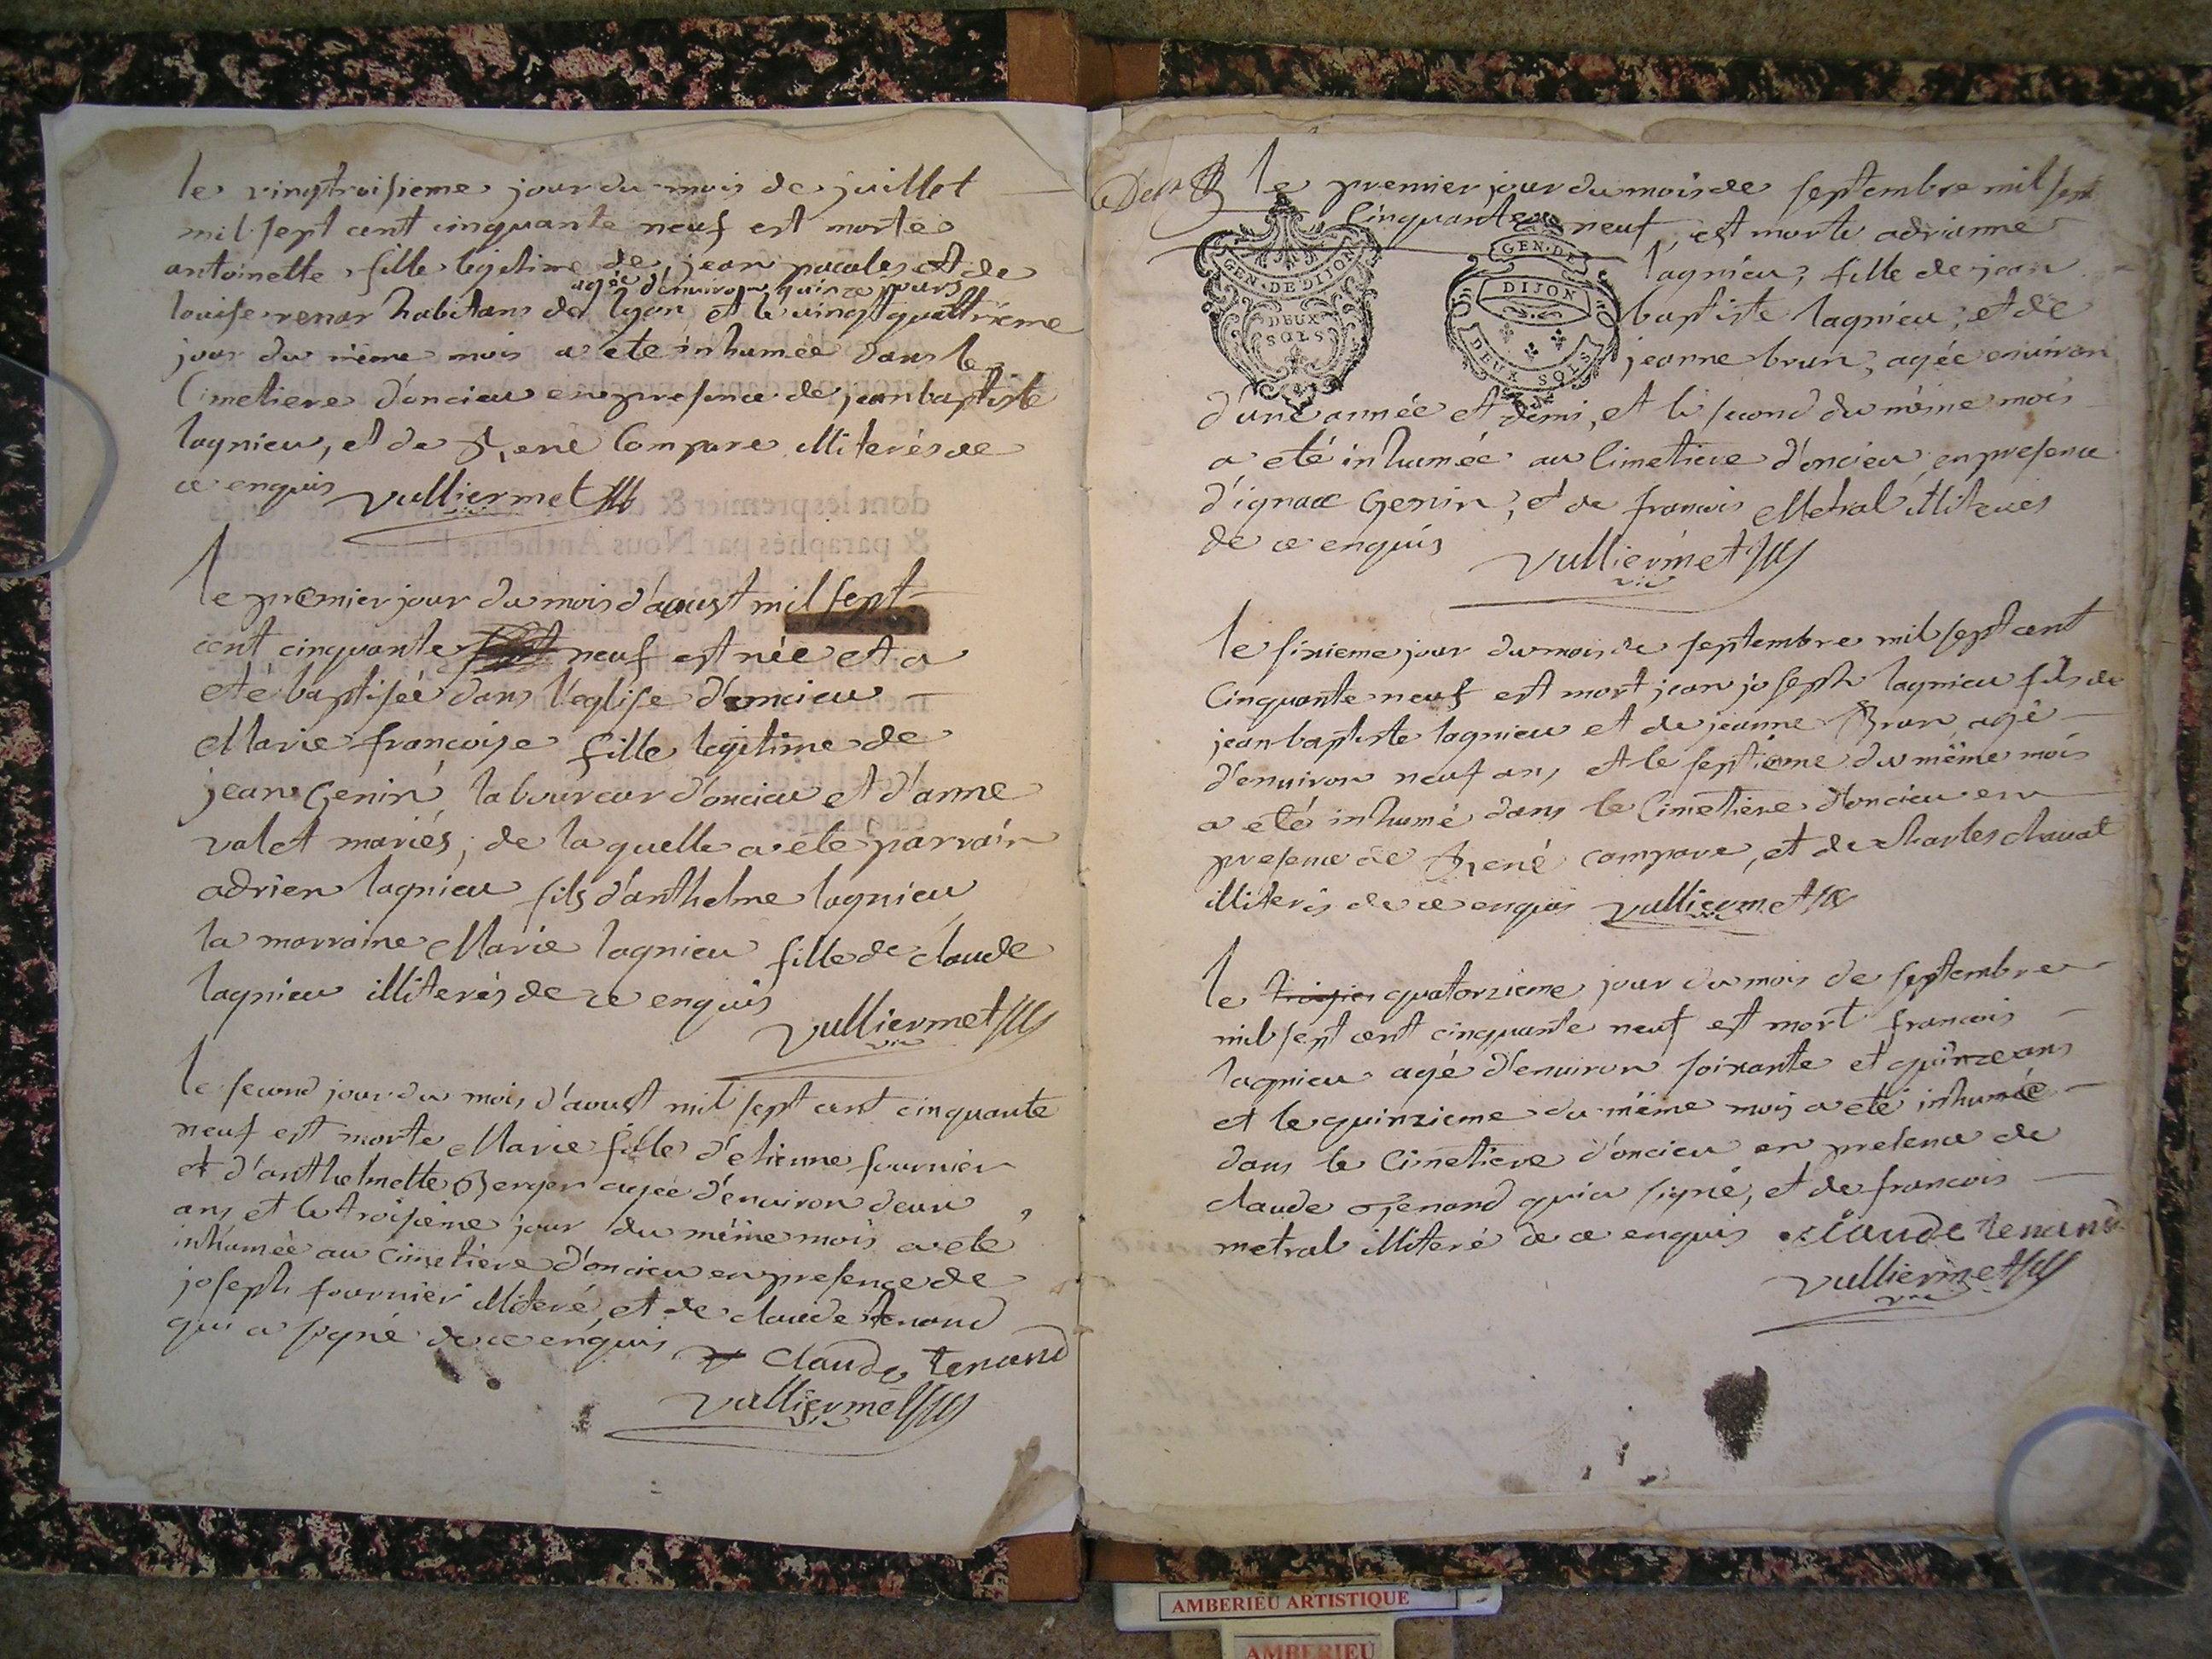 le vingtroisieme jour du mois de juillet
mil sept cent cinquante neuf est morte
antoinette fille legitime de jean pacales et de
agée d'environ quinze jours
louise renar habitans de lyon et le vingtquattrieme
jour du même mois a eté inhumée dans le
Cimetiere d'oncieu en presence de jean baptiste
lagnieu, et de René Compare illiterés de
ce enquis Vulliermet
le premier jour du mois d'aoust mil sept
cent cinquante neuf est née et a
eté baptisée dans l'eglise d'oncieu
Marie francoise fille legitime de
jean Genin laboureur d'oncieu et d'anne
valet mariés, de la quelle a eté parrain
adrien lagnieu fils d'anthelme lagnieu
la marraine Marie lagnieu fille de claude
lagnieu illiterés de ce enquis
Vulliermet
vic
le second jour du mois d'aoust mil sept cent cinquante
neuf est morte Marie fille d'etienne fournier
et d'anthelmette Berger agée d'environ deux
ans et le troisieme jour du même mois a eté
inhumée au cimetiere d'oncieu en presence de
joseph fournier illiteré, et de claude tenand
qui a signé de ce enquis
Claude tenand
Vulliermet
vic
le premier jour du mois de septembre mil sept
cinquante neuf, est morte adrianne
lagnieu, fille de jean
baptiste lagnieu, et de
jeanne brun, agée environ
GEN·DE DIJON
DEUX
SOLS
GEN·DE
DIJON
DEUX SOLS
d'une année et demi, et le second du même mois
a eté inhumée au Cimetiere d'oncieu en presence
d'ignace Genin, et de francois Metral illiterés
de ce enquis
Vulliermet
vic
le sixieme jour du mois de septembre mil sept cent
Cinquante neuf est mort jean joseph lagnieu fils de
jean baptiste lagnieu et de jeanne Brun, agé
d'environ neuf ans et le septième du même mois
a eté inhumé dans le Cimetiere d'oncieu en
presence de René compare, et de charles chavat
illiterés de ce enquis Vulliermet
le quatorzieme jour du mois de septembre
mil sept cent cinquante neuf est mort francois
lagnieu agé d'environ soixante et quinze ans
et le quinzieme du même mois a eté inhumée
dans le Cimetiere d'oncieu en presence de
claude tenand qui a signé, et de francois
metral illiteré de ce enquis claude tenand
Vulliermet
vic
AMBERIEU ARTISTIQUE
AMBERIEU